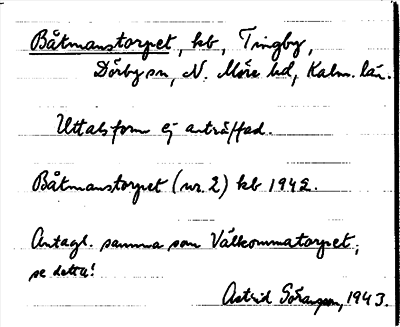 Båtmanstorpet, kb, Tingby,
Dörby sn, N. Möre hd, Kalm. län.
Uttalsform ej anträffad.
Båtmanstorpet (nr. 2) kb 1942.
Antagl. samma som Välkommatorpet,
se detta!
Astrid Göransson, 1943.